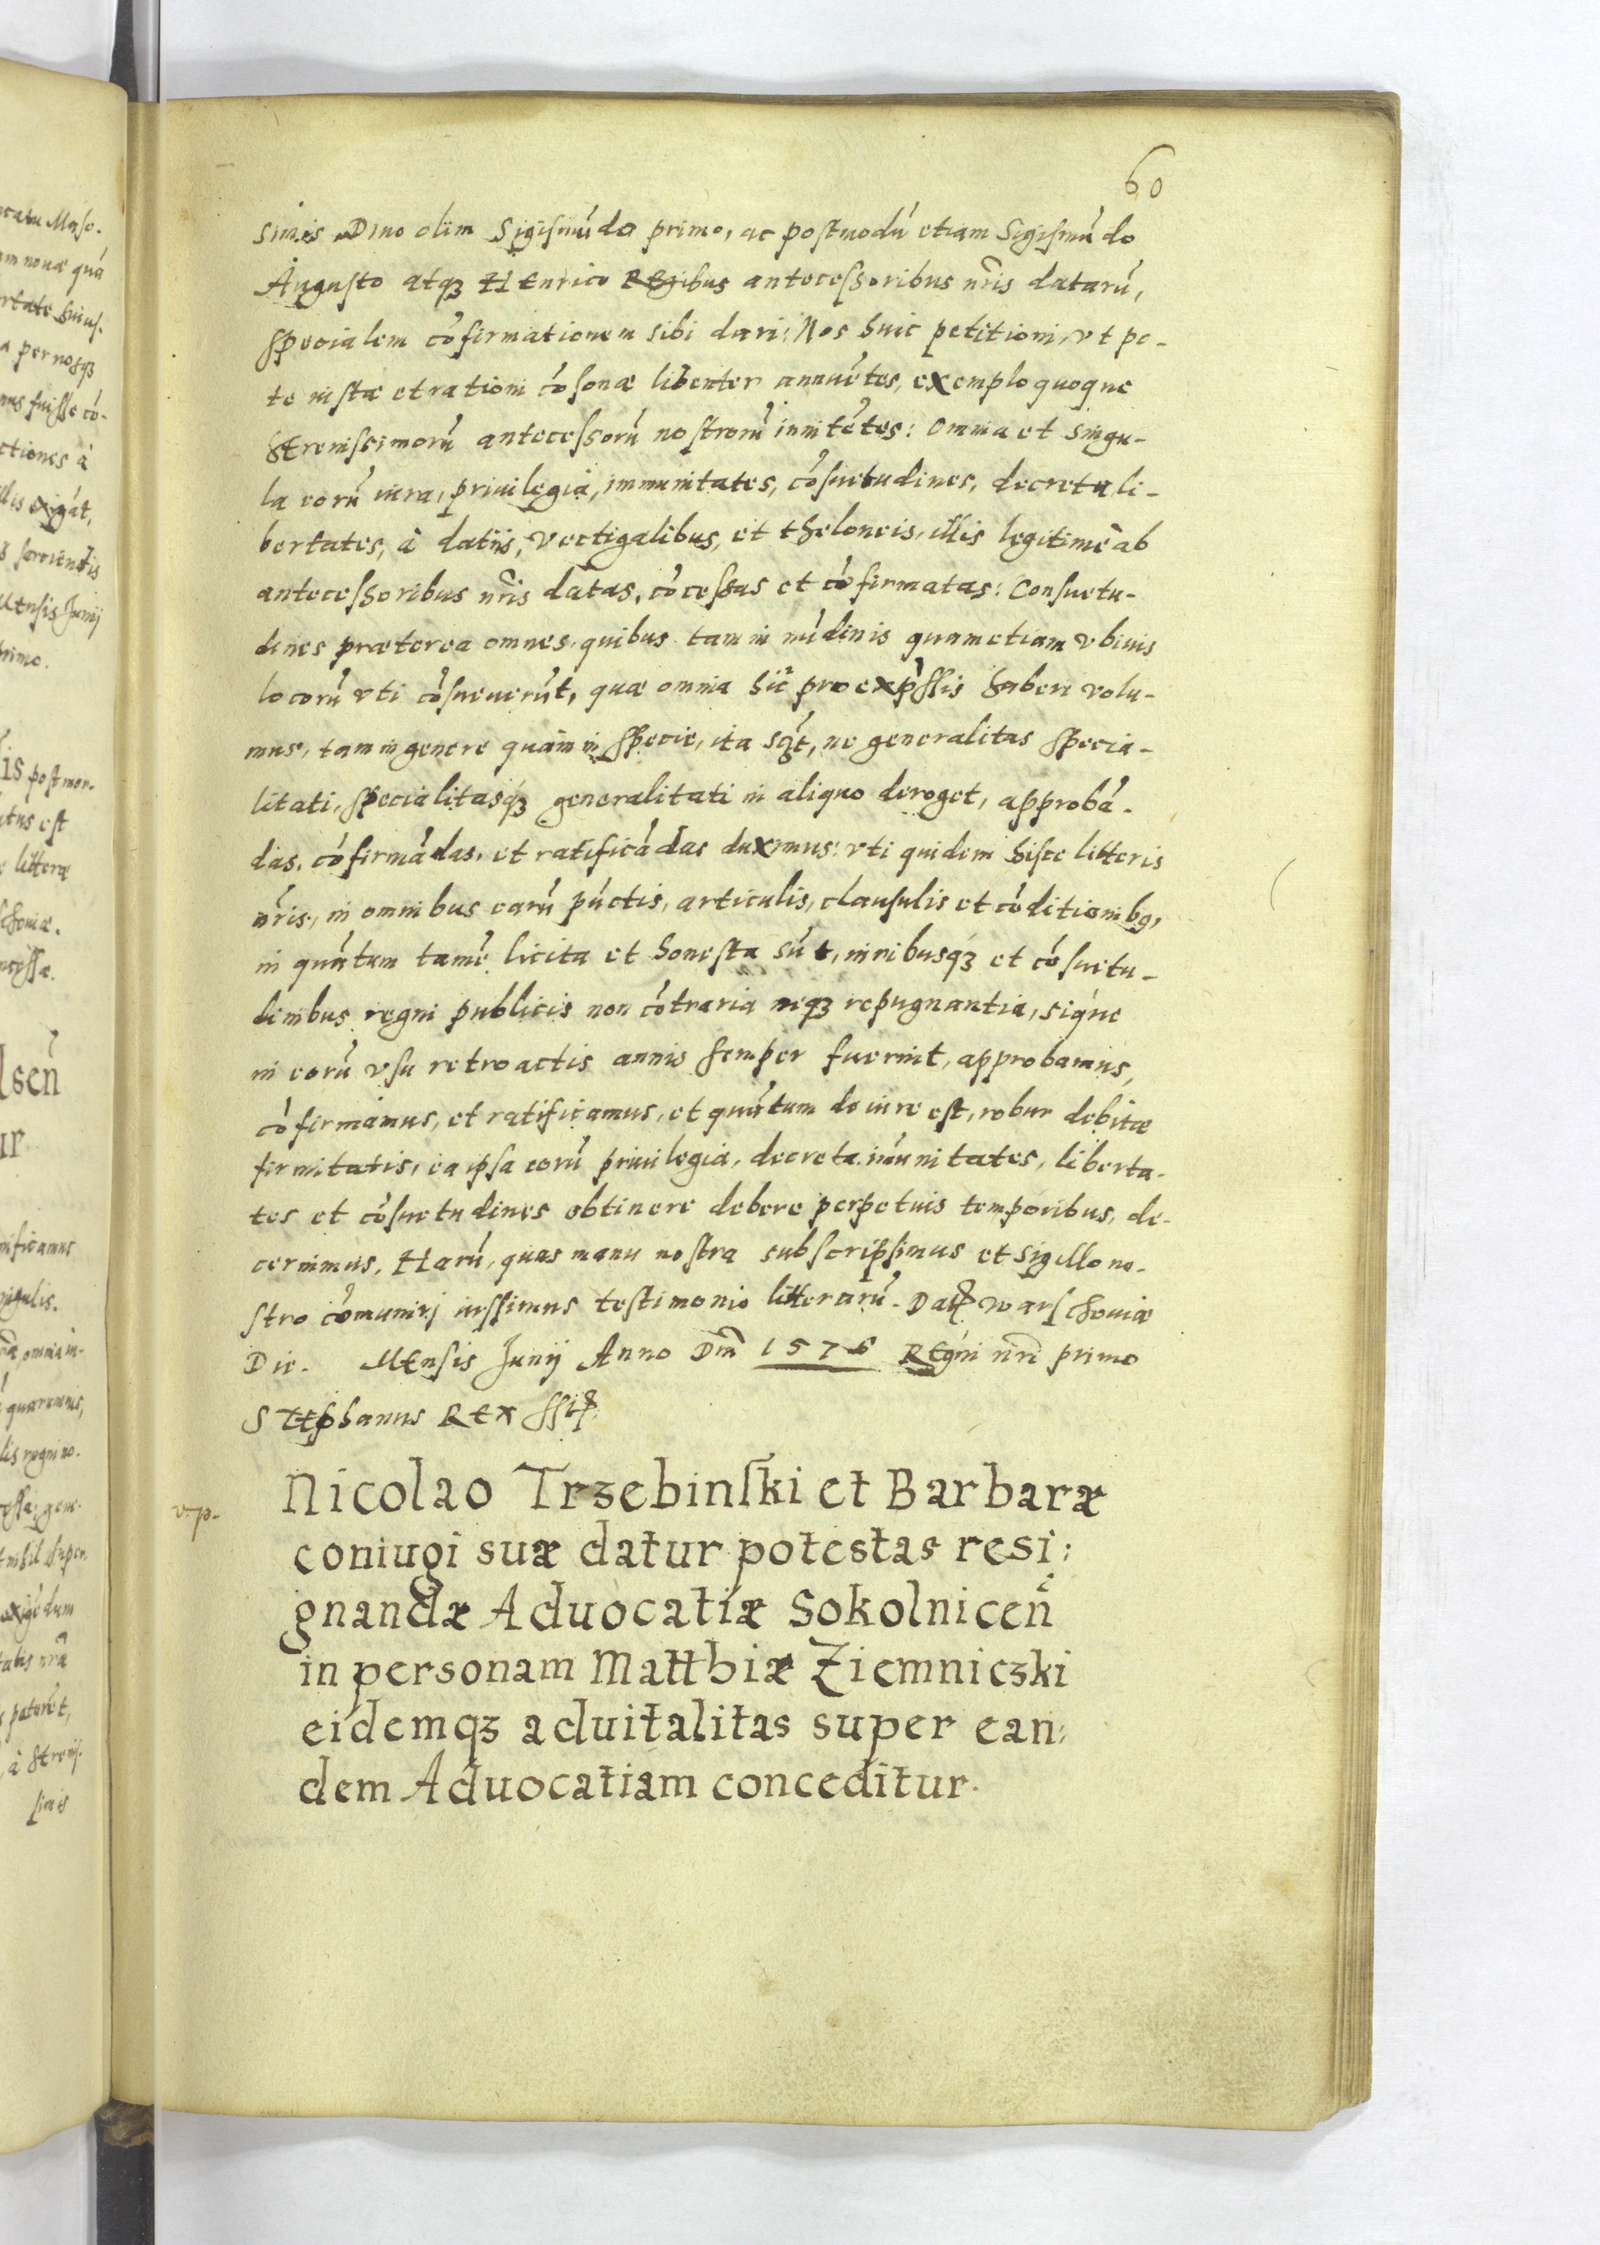 60
simis Diuo olim Sigismũdo primo, ac postmodũ etiam Sigismũdo
Augusto atq3 HEnrico REgibus antecessoribus nr̃is datarũ,
specialem cõfirmationem sibi dari: Nos huic petitioni, vt po-
te iustæ et rationi cõsonæ libenter annuẽtes, exemplo quoque
SErenissimorũ antecessorũ nostrorũ imitẽtes: Omnia et singu-
la eorũ iura, priuilegia, immunitates, cõsuetudines, decreta, li-
bertates, à datiis, vectigalibus, et theloneis, illis legitimè ab
antecessoribus nr̃is datas, cõcessas et cõfirmatas: Consuetu-
dines præterea omnes, quibus tam in nũdinis quam etiam vbiuis
locorũ vti cõsueuerũt, quæ omnia hic pro exp̃ssis habere volu-
mus, tam in genere quàm in specie, ita sq̃t, ne generalitas specia-
litati, specialitasq3 generalitati in aliquo deroget, approbã-
das, cõfirmãdas, et ratificãdas duximus: vti quidem hisce litteris
nr̃is, in omnibus earũ pũctis, articulis, clausulis et cõditionibg,
in quãtum tamẽ licita et honesta sũt, iuribusq3 et cõsuetu-
dinibus regni publicis non cõtraria neq3 repugnantia, siq́ue
in eorũ vsu retroactis annis semper fuerint, approbamus,
cõfirmamus, et ratificamus, et quãtum de iure est, robur debitæ
firmitatis, ea ipsa eorũ priuilegia, decreta, im̃unitates, liberta-
tes et cõsuetudines obtinere debere perpetuis temporibus, de-
cernimus, HArũ, quas manu nostra subscripsimus et sigillo no-
stro cõmuniri iussimus testimonio litterarũ. Dat̃ warschouiæ
Die. MEnsis Junij Anno Dm̃ 1576 REgni nr̃i primo
STEphanus REX sst̃
v-p-
Nicolao Trzebinski et Barbaræ
coniugi suæ datur potestas resi:
gnandæ Aduocatiæ Sokolniceñ
in personam Matthiæ Ziemniczki
eidemq3 aduitalitas super ean:
dem Aduocatiam conceditur.